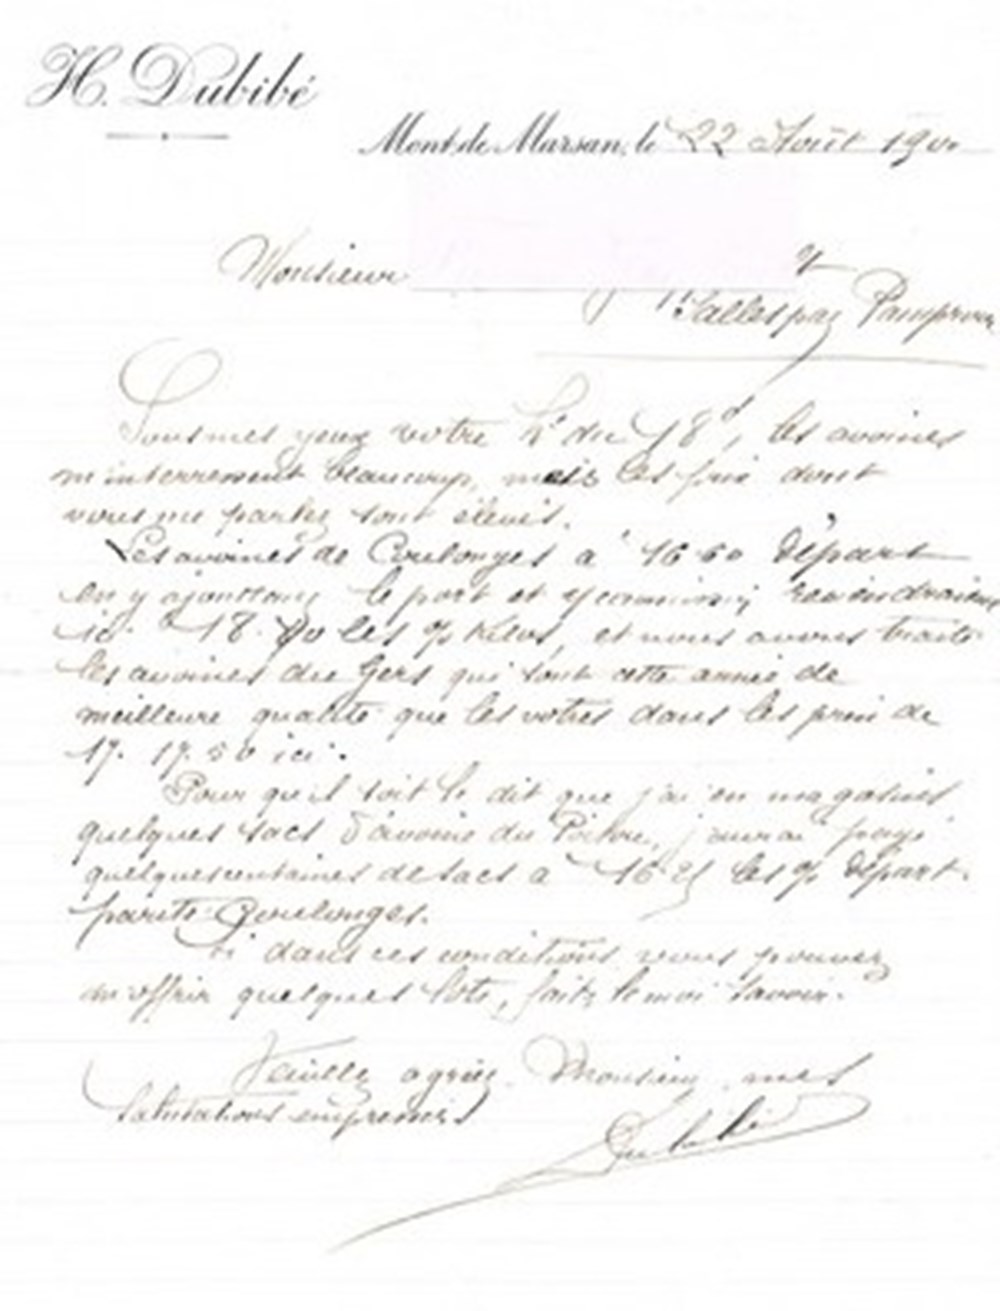 H. Dubibé
Mont-de-Marsan, le 22 Août 1900
Monsieur
à Salles par Pamproux
Sous mes yeux votre Lre du 18 ct, les avoines
m'interressent beaucoup, mais les prix dont
vous me parlez sont élevés.
Les avoines de Coulonges à 16 60 départ
en y ajouttant le port et reviendraient
ici à 18. les % Kilos, et nous avons traité
les avoines du Gers qui sont cette année de
meilleure qualité que les votres dans les prix de
17. 17.50 ici.
Pour qu'il soit dit que j'ai en magasins
quelques sacs d'avoine du Poitou, j'aurai payé
quelques centaines de sacs à 16.25 les % départ
parité Coulonges.
Si dans ces conditions vous pouvez
m'offrir quelques lots, faites le moi savoir.
Veuillez agréez Monsieur mes
salutations empressées
Dubibé